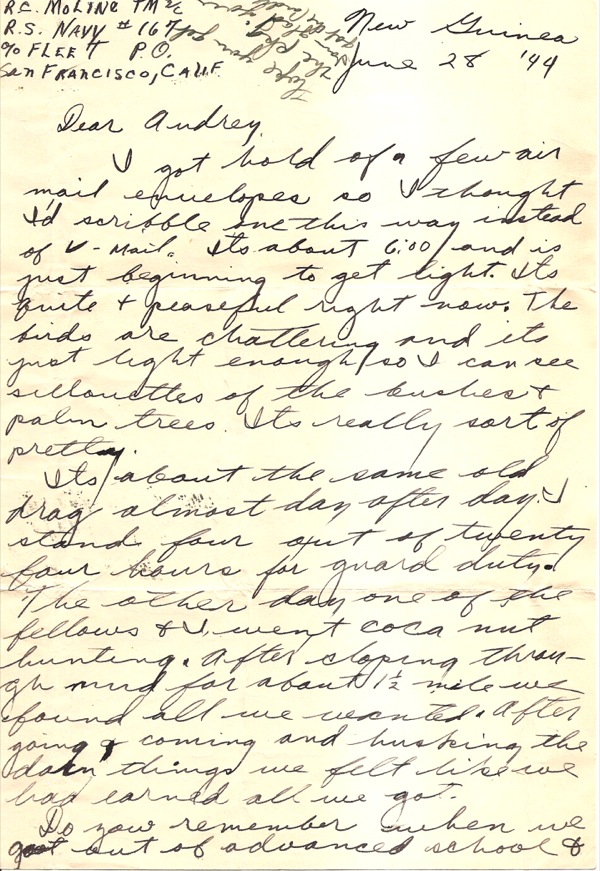 R.C. MOLINE TM 2/c
R.S. NAVY # 167
c/o FLEET P.O.
SAN FRANCISCO, CALIF.
Hope you got
New Guinea
June 28 '44
Dear Audrey,
I got hold of a few air
mail envelopes so I thought
I'd scribble one this way instead
of V-Mail. Its about 6:00 and is
just beginning to get light. Its
quite & peaseful right now. The
birds are chattering and its
just light enough so I can see
sillouettes of the bushes &
palm trees. Its really sort of
pretty.
Its about the same old
drag almost day after day. I
stand four out of twenty
four hours for guard duty.
The other day one of the
fellows & I went coca nut
hunting. After sloping throu-
gh mud for about 1½ mile we
found all we wanted. After
going & coming and husking the
darn things we felt like we
had earned all we got.
Do you remember when we
got out of advanced school &